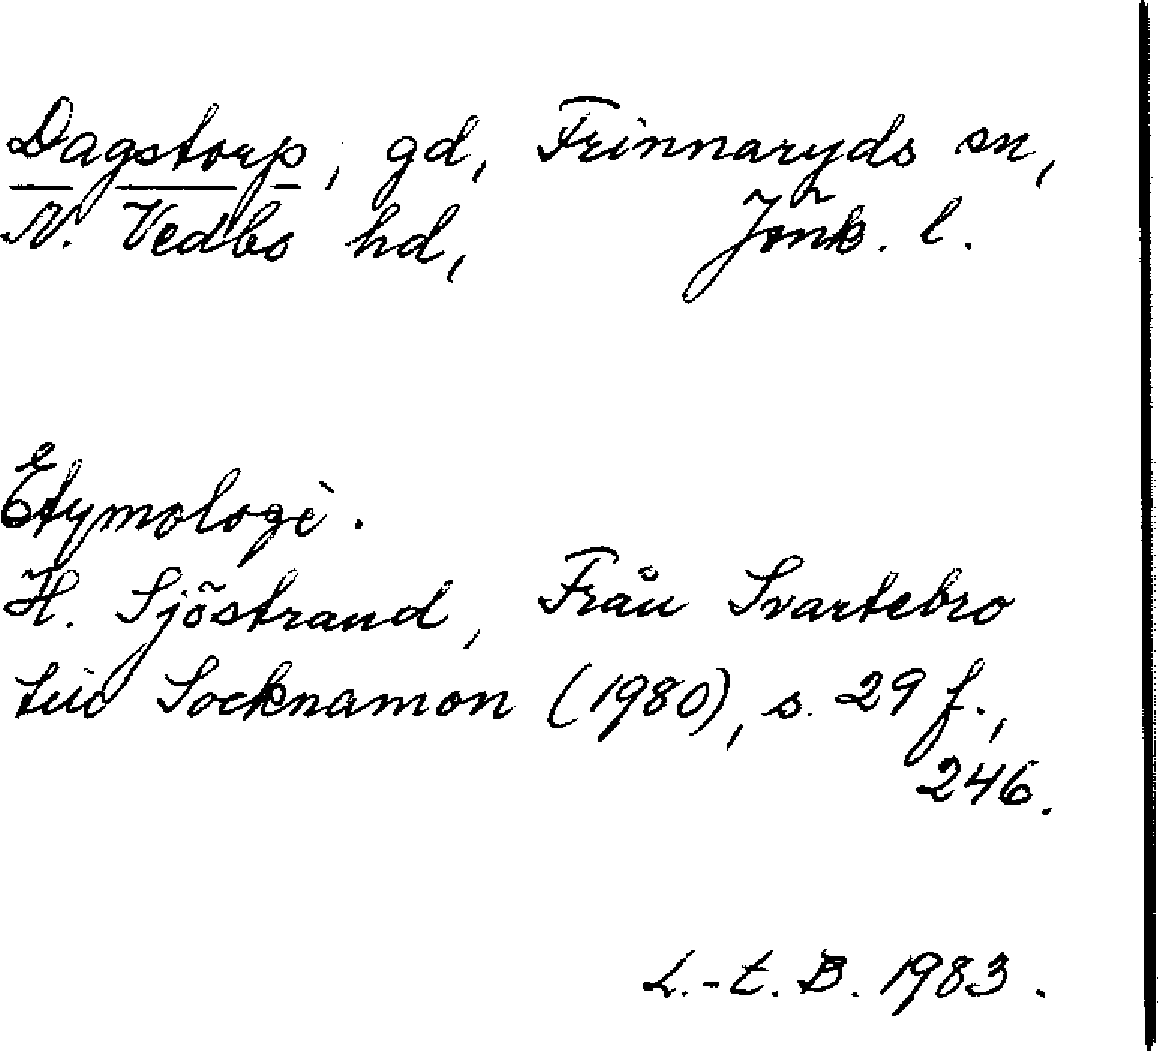 Dagstorp, gd, Frinnaryds sn,
N. Vedbo hd, Jönk. l.
Etymologi.
H. Sjöstrand, Från Svartebro
till Socknamon (1980), s. 29 f.,
246.
L.-E. B. 1983.